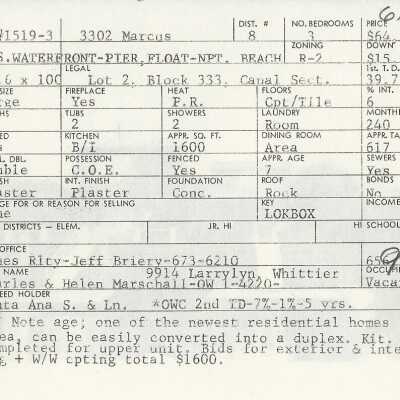 DIST. # NO. BEDROOMS PRICE
1519-3 3302 Marcus 8 3 $64
ZONING DOWN
S.WATERFRONT-PIER,FLOAT-NPT. BEACH R-2 $15
LEGAL 1st. T.D.
6 x 100 Lot 2, Block 333, Canal Sect. 39.7
FIREPLACE HEAT FLOORS % INT.
rge Yes P.R. Cpt/Tile 6
TUBS SHOWERS LAUNDRY MONTH
2 2 Room 240
KITCHEN APPR. SQ. FT. DINING ROOM TAX
B/I 1600 Area 617
DBL. POSSESSION FENCED APPR. AGE SEWERS
ble C.O.E. Yes 7 Yes
SH INT. FINISH FOUNDATION ROOF BONDS
aster Plaster Conc. Rock No
GE FOR OR REASON FOR SELLING KEY INCOME
ne LOKBOX
DISTRICTS - ELEM. JR. HI HI SCHOOL
OFFICE
nes Rlty-Jeff Briery-673-6210
NAME 9914 Larrylyn, Whittier OCCU
rles & Helen Marschall-OW 1-4220- Vaca
EED HOLDER
nta Ana S. & Ln. *OWC 2nd TD-7%-1%-5 yrs.
Note age; one of the newest residential homes
ea, can be easily converted into a duplex. Kit.
mpleted for upper unit. Bids for exterior & inte
g + W/W cpting total $1600.